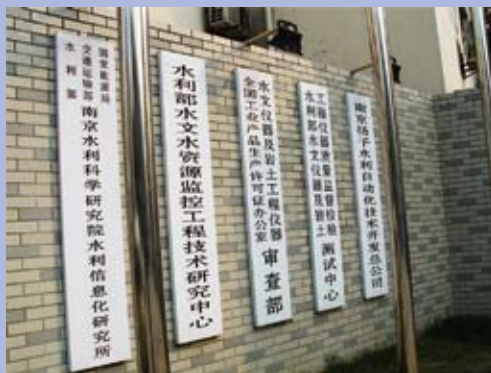 国家能源局
交通运输部
水利部
南京水利科学研究院水利信息化研究所
水利部水文水资源监控工程技术研究中心
全国工业产品生产许可证办公室
水文仪器及岩土工程仪器
审查部
水利部水文仪器及岩土
工程仪器质量监督检验
测试中心
南京扬子水利自动化技术开发总公司